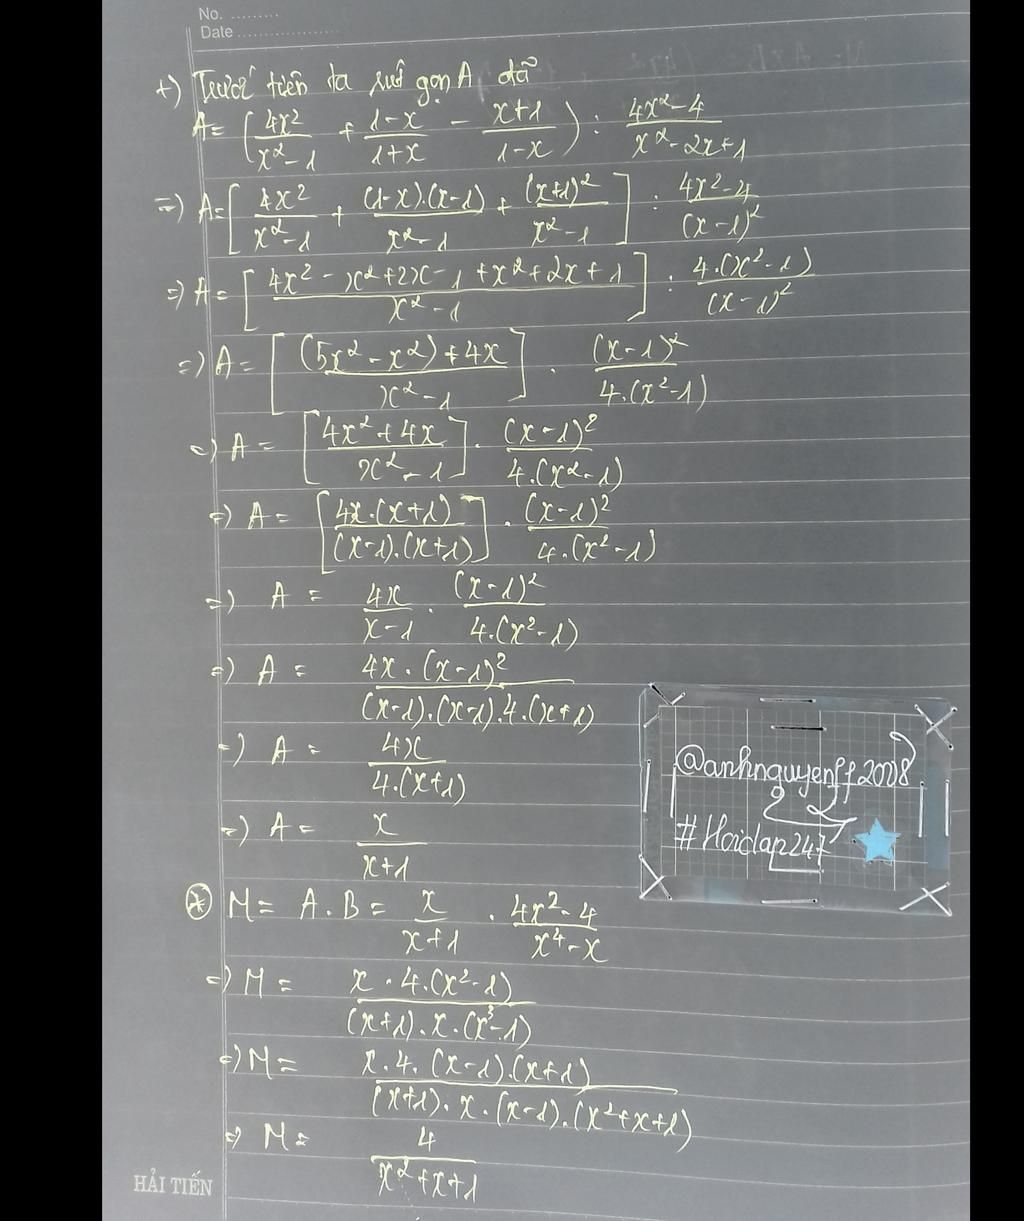 No. .........
Date ..................
+) Trước tiên ta rút gọn A đã
A = (4x²/x²-1 + 1-x/1+x - x+1/1-x) : 4x²-4/x²-2x+1
=) A = [4x²/x²-1 + (1-x).(x-1)/x²-1 + (x+1)²/x²-1] : 4x²-4/(x-1)²
=) A = [4x²-x²+2x-1+x²+2x+1/x²-1] : 4.(x²-1)/(x-1)²
=) A = [(5x²-x²)+4x/x²-1] . (x-1)²/4.(x²-1)
=) A = [4x²+4x/x²-1] . (x-1)²/4.(x²-1)
=) A = [4x.(x+1)/(x-1).(x+1)] . (x-1)²/4.(x²-1)
=) A = 4x/x-1 . (x-1)²/4.(x²-1)
=) A = 4x.(x-1)²/(x-1).(x-1).4.(x+1)
=) A = 4x/4.(x+1)
=) A = x/x+1
@anhnguyenff2008
#Hoidap247
* M = A.B = x/x+1 . 4x²-4/x⁴-x
=) M = x.4.(x²-1)/(x+1).x.(x³-1)
=) M = x.4.(x-1).(x+1)/(x+1).x.(x-1).(x²+x+1)
=) M = 4/x²+x+1
HẢI TIẾN